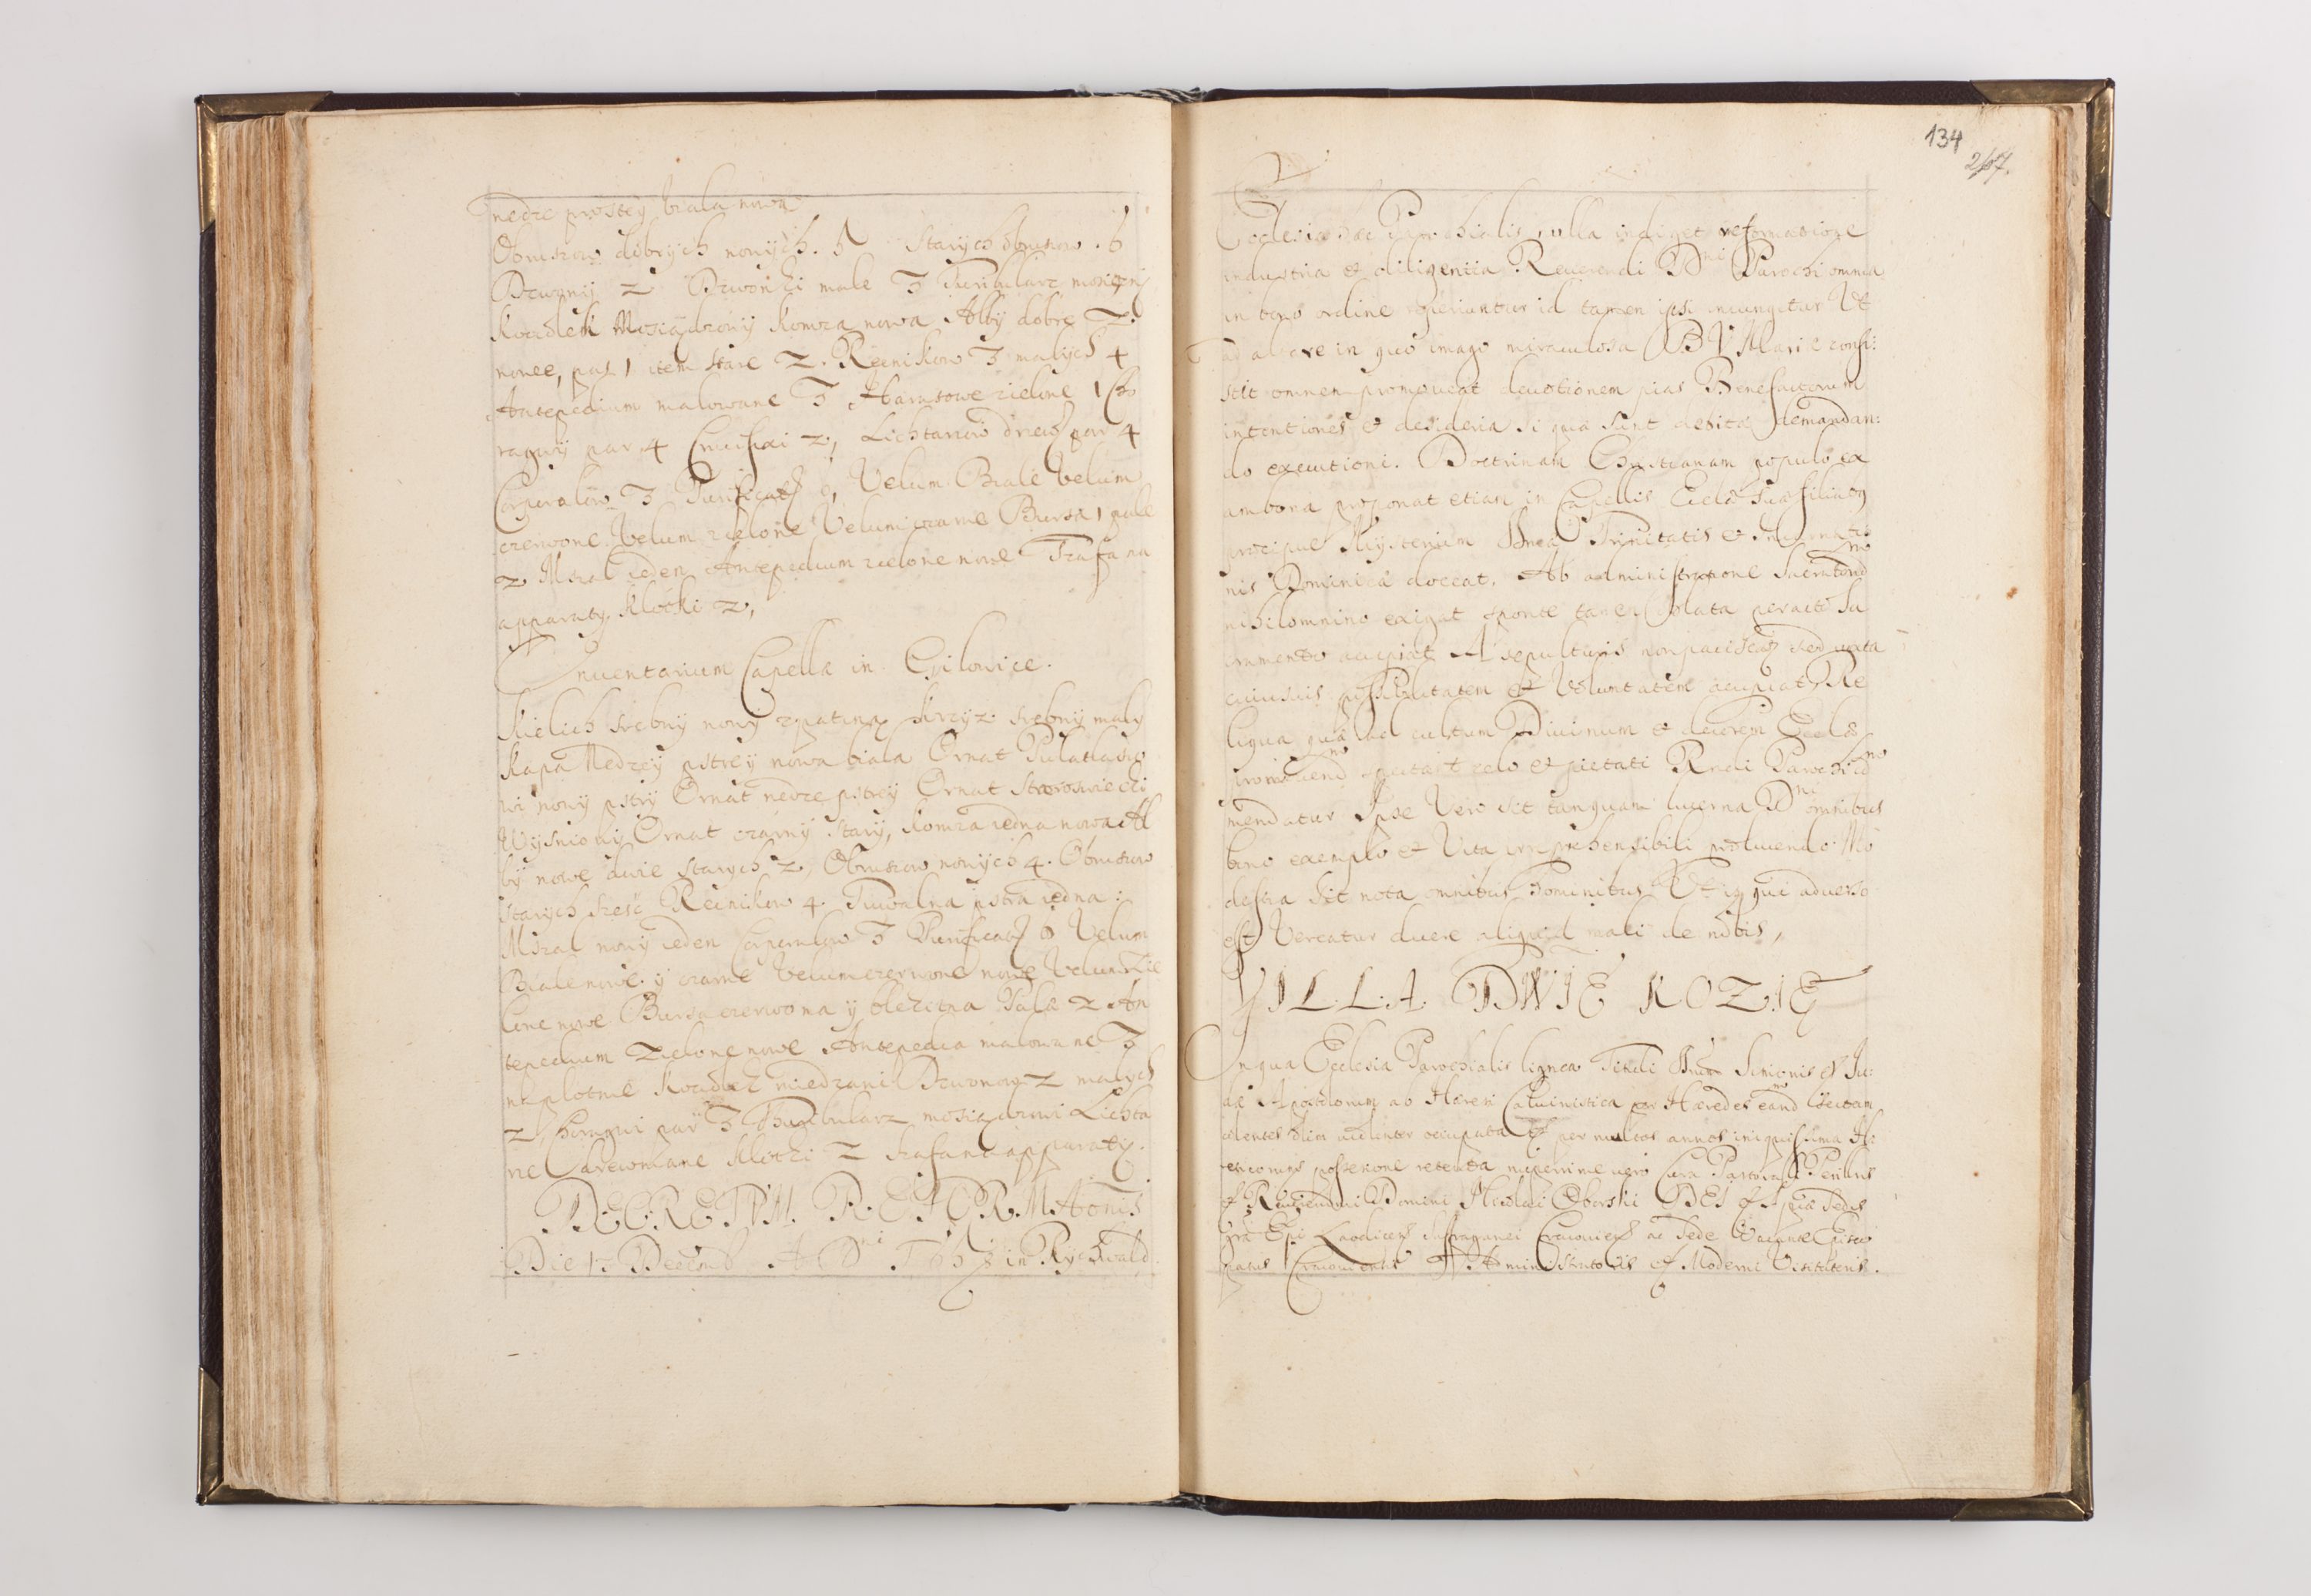 nedze prostey biala nowa
Obrusow dobrych nowych. 5 Starych obrusow. 6
Dzwony 2 Dzwonki male 3 Turibularz mosiezny
Kociełek Mosiądzowy Komza nowa Alby dobre 2.
nowe, pas 1 item stare 2. Recnikow 3 malych 4
Antepedium malowane 3 Harasowe zielone 1 Cho
ragwy par 4 Crucifixi 2, Lichtarzow drew par 4
Corporalow 3 Purificat 9, Velum Biale Velum
czerwone Velum zielone Velum czarne Bursa 1 pale
2 Mszal ieden Antepedium zielone nowe Szafa na
apparaty, Klocki 2,
Inuentarium Capellæ in Gilowice.
Kielich srebny nowy z patiną Krzyz srebny maly
Kapa Nedzey pstrey nowa biala Ornat Pulatlaso
wi nowy pstry Ornat nedze pstrey Ornat Staroswiecki
Wysniowy Ornat czarny stary, Komza iedna nowa Al
by nowe dwie starych 2, Obrusow nowych 4. Obrusow
starych szesc Recnikow 4. Tuwalna pstra iedna:
Mszal nowy ieden Corporalow 3 Purificat 6 Velum
Biale nowe y czarne Velum czerwone nowe Velum Zie
lone nowe Bursa czerwona y Pala 2 An
tepedium Zielone nowe Antepedia malowane 3
na plotnie Kociełek miedziani Dzwonow 2 malych
2, Choragwi par 3 Thuribularz mosiądzowi Lichta
rze Drewniane Klocki 2 szafa na apparaty.
DECRETVM REFORMAonis
Die 17 Decemb A D ni in Rychwald
134
Ecclesia hæc Parochialis nulla indiget reformatione
industria et diligentia Reuerendi Dni Parochi omnia
in bono ordine reperiuntur id tamen ipsi iniungitur Vt
ad altare in quo imago miraculosa B V Mariæ consi:
stit omnem promoueat deuotionem pias Benefactorum
intentiones et desideria si qua sunt debitæ demandan:
do executioni. Doctrinam Christianam populo ex
ambona proponat etiam in Capellis Ecclæ suæ filiabus
præcipue Mysterium Trinitatis et Incarnatio
nis Dominicæ doceat. Ab administratione Sacramtorum
nihil omnino exigat sponte tamen oblata peracto Sa
cramento accipiat A sepulturis non paciscat sed iuxta
cuiusuis possibilitatem et Voluntatem accipiat, Re
liqua quæ ad cultum Diuinum et decorem Ecclæ
promouend spectant zelo et pietati Rndi Parochi com
mendatur Ipse Vero sit tanquam lucerna Dni omnibus
bono exemplo et Vita irreprehensibili prælucendo Mo
destia sit nota omnibus hominibus Vt is qui aduerso
est Vereatur dicere aliquid mali de nobis,
VILLA DWIE KOZIE
In qua Ecclesia Parochialis lignea Tituli Simonis et Iu:
dæ Apostolorum ab Hæresi Caluinistica per Hæredes eand sectam
colentes olim uiolenter occupata et per multos annos iniquissima Hæ:
possesione retenta nuperrime uero Cura Pastorali Perillris
et Rndissimi Domini Nicolai Oborski DEI et Aplicæ Sedis
gra Epi Laodicen Suffraganei Cracouien ac Sede Vacante Episco
patus Cracouiensis Administratoris et Moderni Visitatoris.